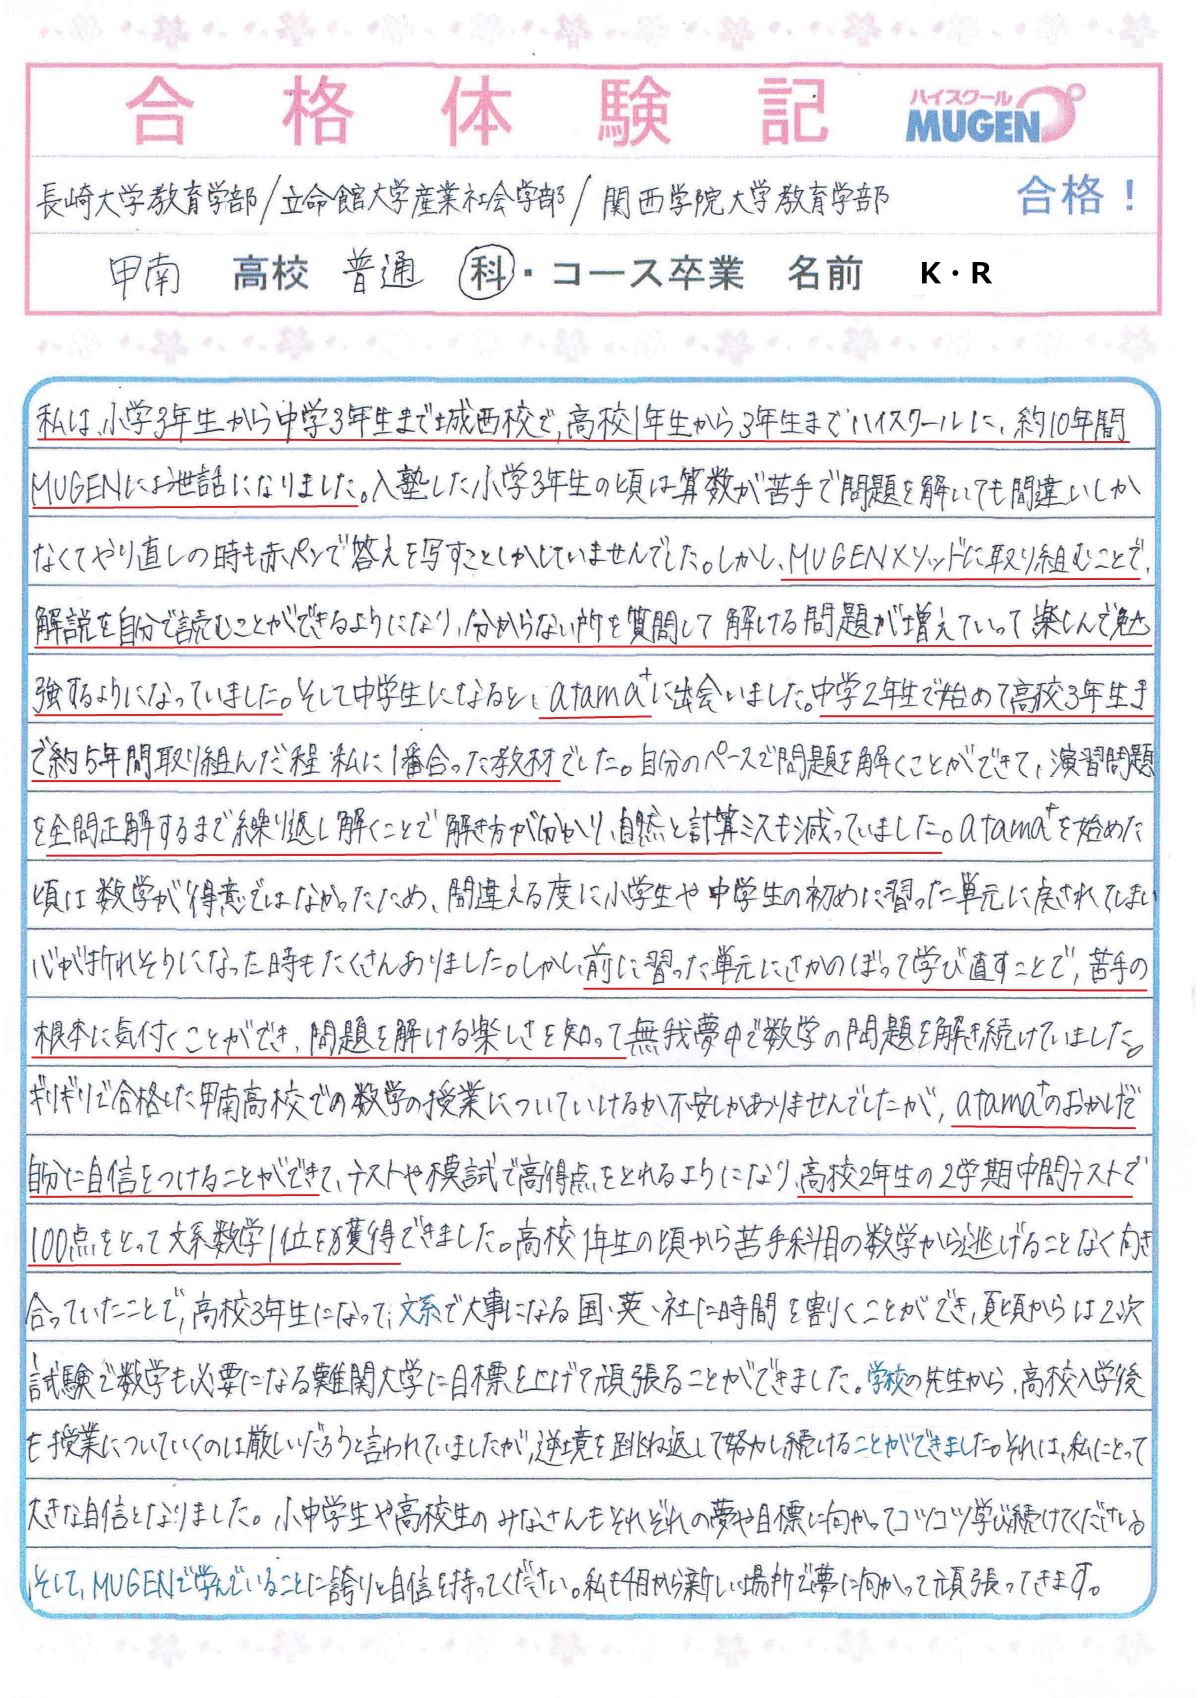 合格体験記
ハイスクール
MUGEN
長崎大学教育学部/立命館大学産業社会学部/関西学院大学教育学部 合格！
甲南 高校 普通 科・コース卒業 名前 K・R
私は、小学3年生から中学3年生まで城西校で、高校1年生から3年生までハイスクールに、約10年間
MUGENにお世話になりました。入塾した小学3年生の頃は算数が苦手で問題を解いても間違いしか
なくてやり直しの時も赤ペンで答えを写すことしかしていませんでした。しかし、MUGENメソッドに取り組むことで、
解説を自分で読むことができるようになり、分からない所を質問して解ける問題が増えていって楽しんで勉
強するようになっていました。そして中学生になると、atama+に出会いました。中学2年生で始めて高校3年生ま
で約5年間取り組んだ程、私に1番合った教材でした。自分のペースで問題を解くことができて、演習問題
を全問正解するまで繰り返し解くことで解き方が分かり、自然と計算ミスも減っていました。atama+を始めた
頃は数学が得意ではなかったため、間違える度に小学生や中学生の初めに習った単元に戻されてしまい
心が折れそうになった時もたくさんありました。しかし、前に習った単元にさかのぼって学び直すことで、苦手の
根本に気付くことができ、問題を解ける楽しさを知って無我夢中で数学の問題を解き続けていました。
ギリギリで合格した甲南高校での数学の授業についていけるか不安しかありませんでしたが、atama+のおかげで
自分に自信をつけることができて、テストや模試で高得点をとれるようになり、高校2年生の2学期中間テストで
100点をとって文系数学1位を獲得できました。高校1年生の頃から苦手科目の数学から逃げることなく向き
合っていたことで、高校3年生になって、文系で大事になる国・英・社に時間を割くことができ、夏頃からは2次
試験で数学も必要になる難関大学に目標を上げて頑張ることができました。学校の先生から、高校入学後
も授業についていくのは厳しいだろうと言われていましたが、逆境を跳ね返して努力し続けることができました。それは、私にとって
大きな自信となりました。小中学生や高校生のみなさんもそれぞれの夢や目標に向かってコツコツ学び続けてください。
そして、MUGENで学んでいることに誇りと自信を持ってください。私も4月から新しい場所で夢に向かって頑張ってきます。